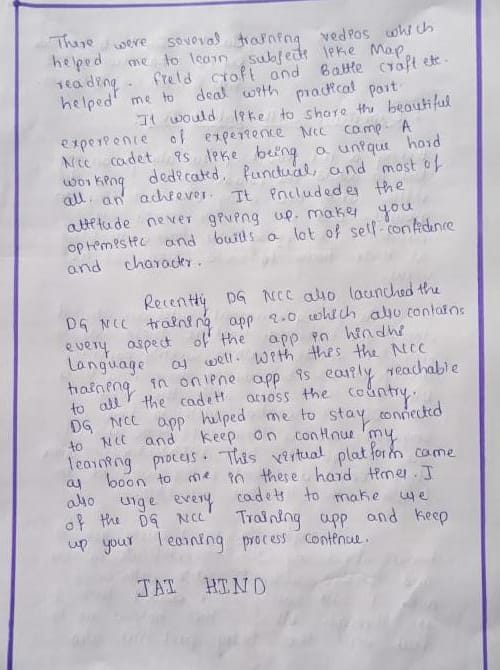 There were several training vedios which
helped me to learn subjects like Map
reading. field craft and Battle craft etc.
helped me to deal with practical part.
It would like to share the beautiful
experience of experience Ncc camp. A
Ncc cadet is like being a unique hard
working dedicated, functual, and most of
all. an achiever. It includedes the
attitude never giving up. makes you
optemestic and builds a lot of self-confidence
and character.
Recently DG NCC also launched the
DG NCC training app 2.0 which also contains
every aspect of the app in hindhi
Language as well. With this the NCC
training in online app is easily reachable
to all the cadets across the country.
DG NCC app helped me to stay connected
to NCC and keep on continue my
learning process. This virtual platform came
as boon to me in these hard times. I
also urge every cadets to make use
of the DG NCC Training app and keep
up your learning process contenue.
JAI HIND